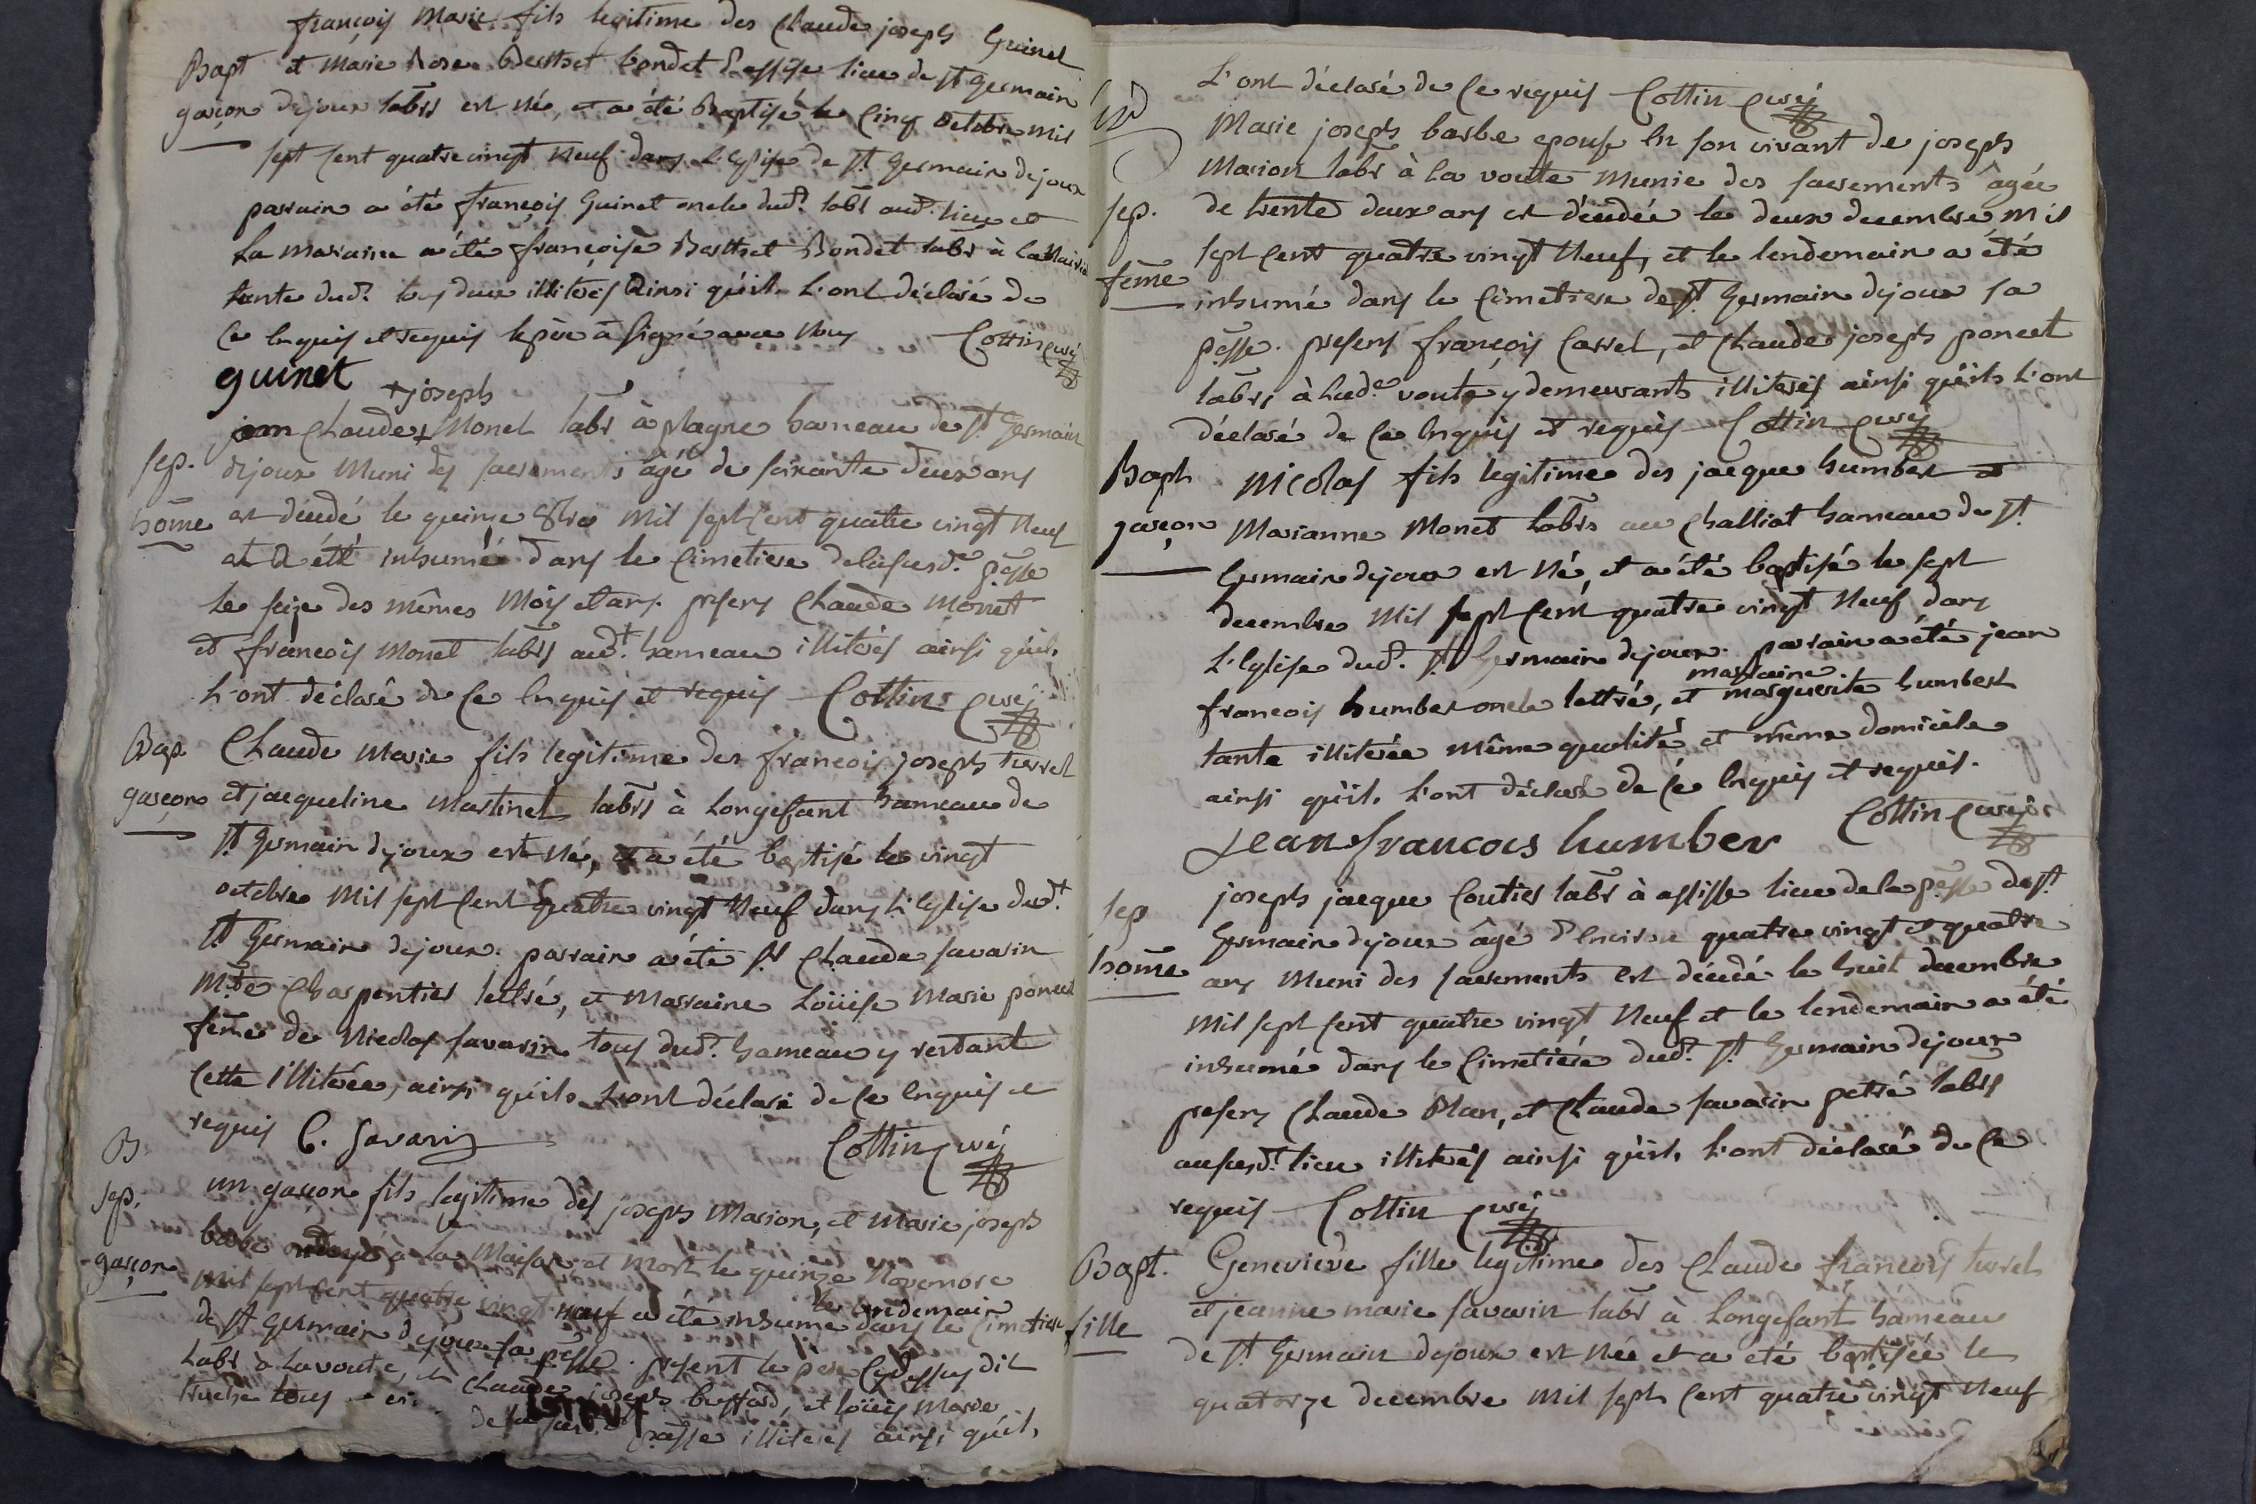 françois Marie fils legitime des Claude joseph Guinet
Bapt et Marie Rose Berthet bondet Dassise lieu de st Germain
garçon dejoux labrs est né, et a été Baptisé le Cinq octobre mil
sept Cent quatre vingt Neuf dans L'Eglise de st Germain dejoux
parrain a été françois Guinet oncle dud. labr aud. lieu et
La Maraine a été françoise Berthet Bondet labr à
tante dud. tous deux illiterés Ainsi qu'ils L'ont déclaré de
Ce Enquis et requis le père a signé avec Nous Cottin curé
guinet
+ joseph
jean Claude + Monet labr à plagne hameau de st Germain
sep. dejoux Muni des sacrements âgé de soixante deux ans
home est décédé le quinze 8bre Mil sept Cent quatre vingt Neuf
et a été inhumé dans le Cimetiere de la susd.e psse
le seize des mêmes Mois et ans. presens Claude Monet
et françois Monet labrs aud.t hameau illiterés ainsi qu'ils
L'ont déclaré de Ce Enquis et requis Cottin curé
Bap Claude Marie fils legitime des françois joseph turrel
garçon et jacqueline Martinet labrs à Longefant hameau de
st Germain dejoux est Né, et a été baptisé le vingt
octobre Mil sept Cent quatre vingt Neuf dans L'Eglise dud.t
st Germain dejoux. parrain a été sr Claude savarin
Mtre Charpentier lettré, et Marraine Loüise Marie poncet
feme de Nicolas savarin tous dud.t hameau y restant
Cette illiterée, ainsi qu'ils L'ont déclaré de Ce Enquis et
requis C. Savarin Cottin curé
B
sep. un garçon fils legitime des joseph Marion, et Marie joseph
garçon barbe ondoyé à la Maison et Mort le quinze Novembre
le lendemain
Mil sept Cent quatre vingt neuf a été inhumé dans le Cimetiere
de st Germain dejoux sa psse. present le pere Cydessus dit
labr à la voute, et Claude joseph buffard, et loüis Marie
tous
de la sus psse illiterés ainsi qu'ils
L'ont déclaré de Ce requis Cottin curé
Marie joseph barbe epouse En son vivant de joseph
Marion labr à la voute Munie des sacrements âgée
sep. de trente deux ans est décédée le deux decembre mil
sept Cent quatre vingt Neuf, et le lendemain a été
feme inhumé dans le Cimetiere de st Germain dejoux sa
psse. presens françois Carrel, et Claude joseph poncet
labrs à lad.e voute y demeurants illiterés ainsi qu'ils L'ont
déclaré de Ce Enquis et requis Cottin curé
Bapt Nicolas fils legitime des jacque humber et
garçon Marianne Monet labrs au Challiat hameau de st
Germain dejoux est Né, et a été baptisé le sept
decembre Mil sept Cent quatre vingt Neuf dans
L'Eglise dud.t st Germain dejoux. parrain a été jean
marraine
francois humber oncle lettré, et marguerite humbert
tante illiterée même qualité et même domicile
ainsi qu'ils L'ont déclaré de Ce Enquis et requis.
jean francois humber Cottin curé
sep joseph jacque Coutier labr à assisse lieu de la psse de st
Germain dejoux âgé d'Environ quatre vingt et quatre
home ans Muni des sacrements est décédé le huit decembre
Mil sept Cent quatre vingt Neuf et le lendemain a été
inhumé dans le Cimetiere dud.t st Germain dejoux
presens Claude Plan, et Claude savarin labrs
au susd.t lieu illiterés ainsi qu'ils L'ont déclaré de Ce
requis Cottin curé
Bapt. Genevieve fille legitime des Claude françois turrel
et jeanne marie savarin labr à Longefant hameau
fille de st Germain dejoux est Née et a eté baptisée le
quatorze decembre Mil sept Cent quatre vingt Neuf